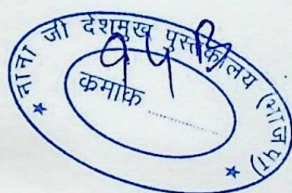 ★ नाना जी देशमुख पुस्तकालय (भाजपा) ★
क्रमांक ..............